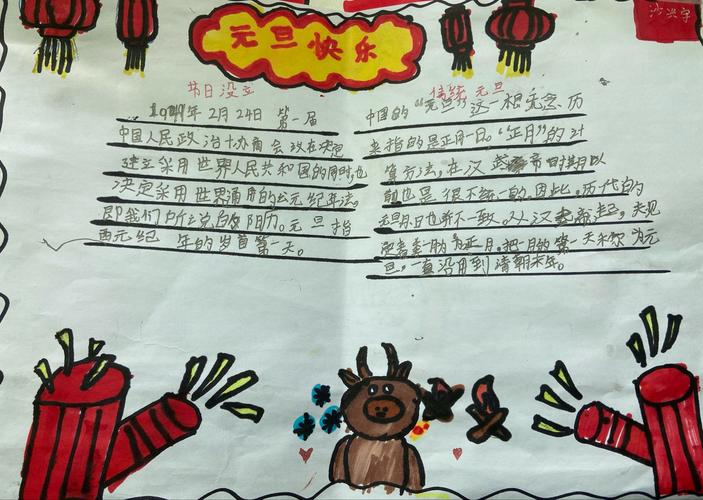 元旦快乐
节日设立
1949年2月24日 第一届
中国人民政治协商会议在决定
建立采用世界人民共和国的同时,也
决定采用世界通用的公元纪年法。
即我们所说的阳历。元旦指
西元纪 年的岁首第一天。
传统元旦
中国的“元旦”这一 概念,历
来指的是正月一日。“正月”的计
算方法,在汉武帝时期以
前也是很不统一的。因此,历代的
元旦月日也并不一致。从汉武帝起,
为正月,把一月的第一天 称为元
旦,一直沿用到清朝末年。